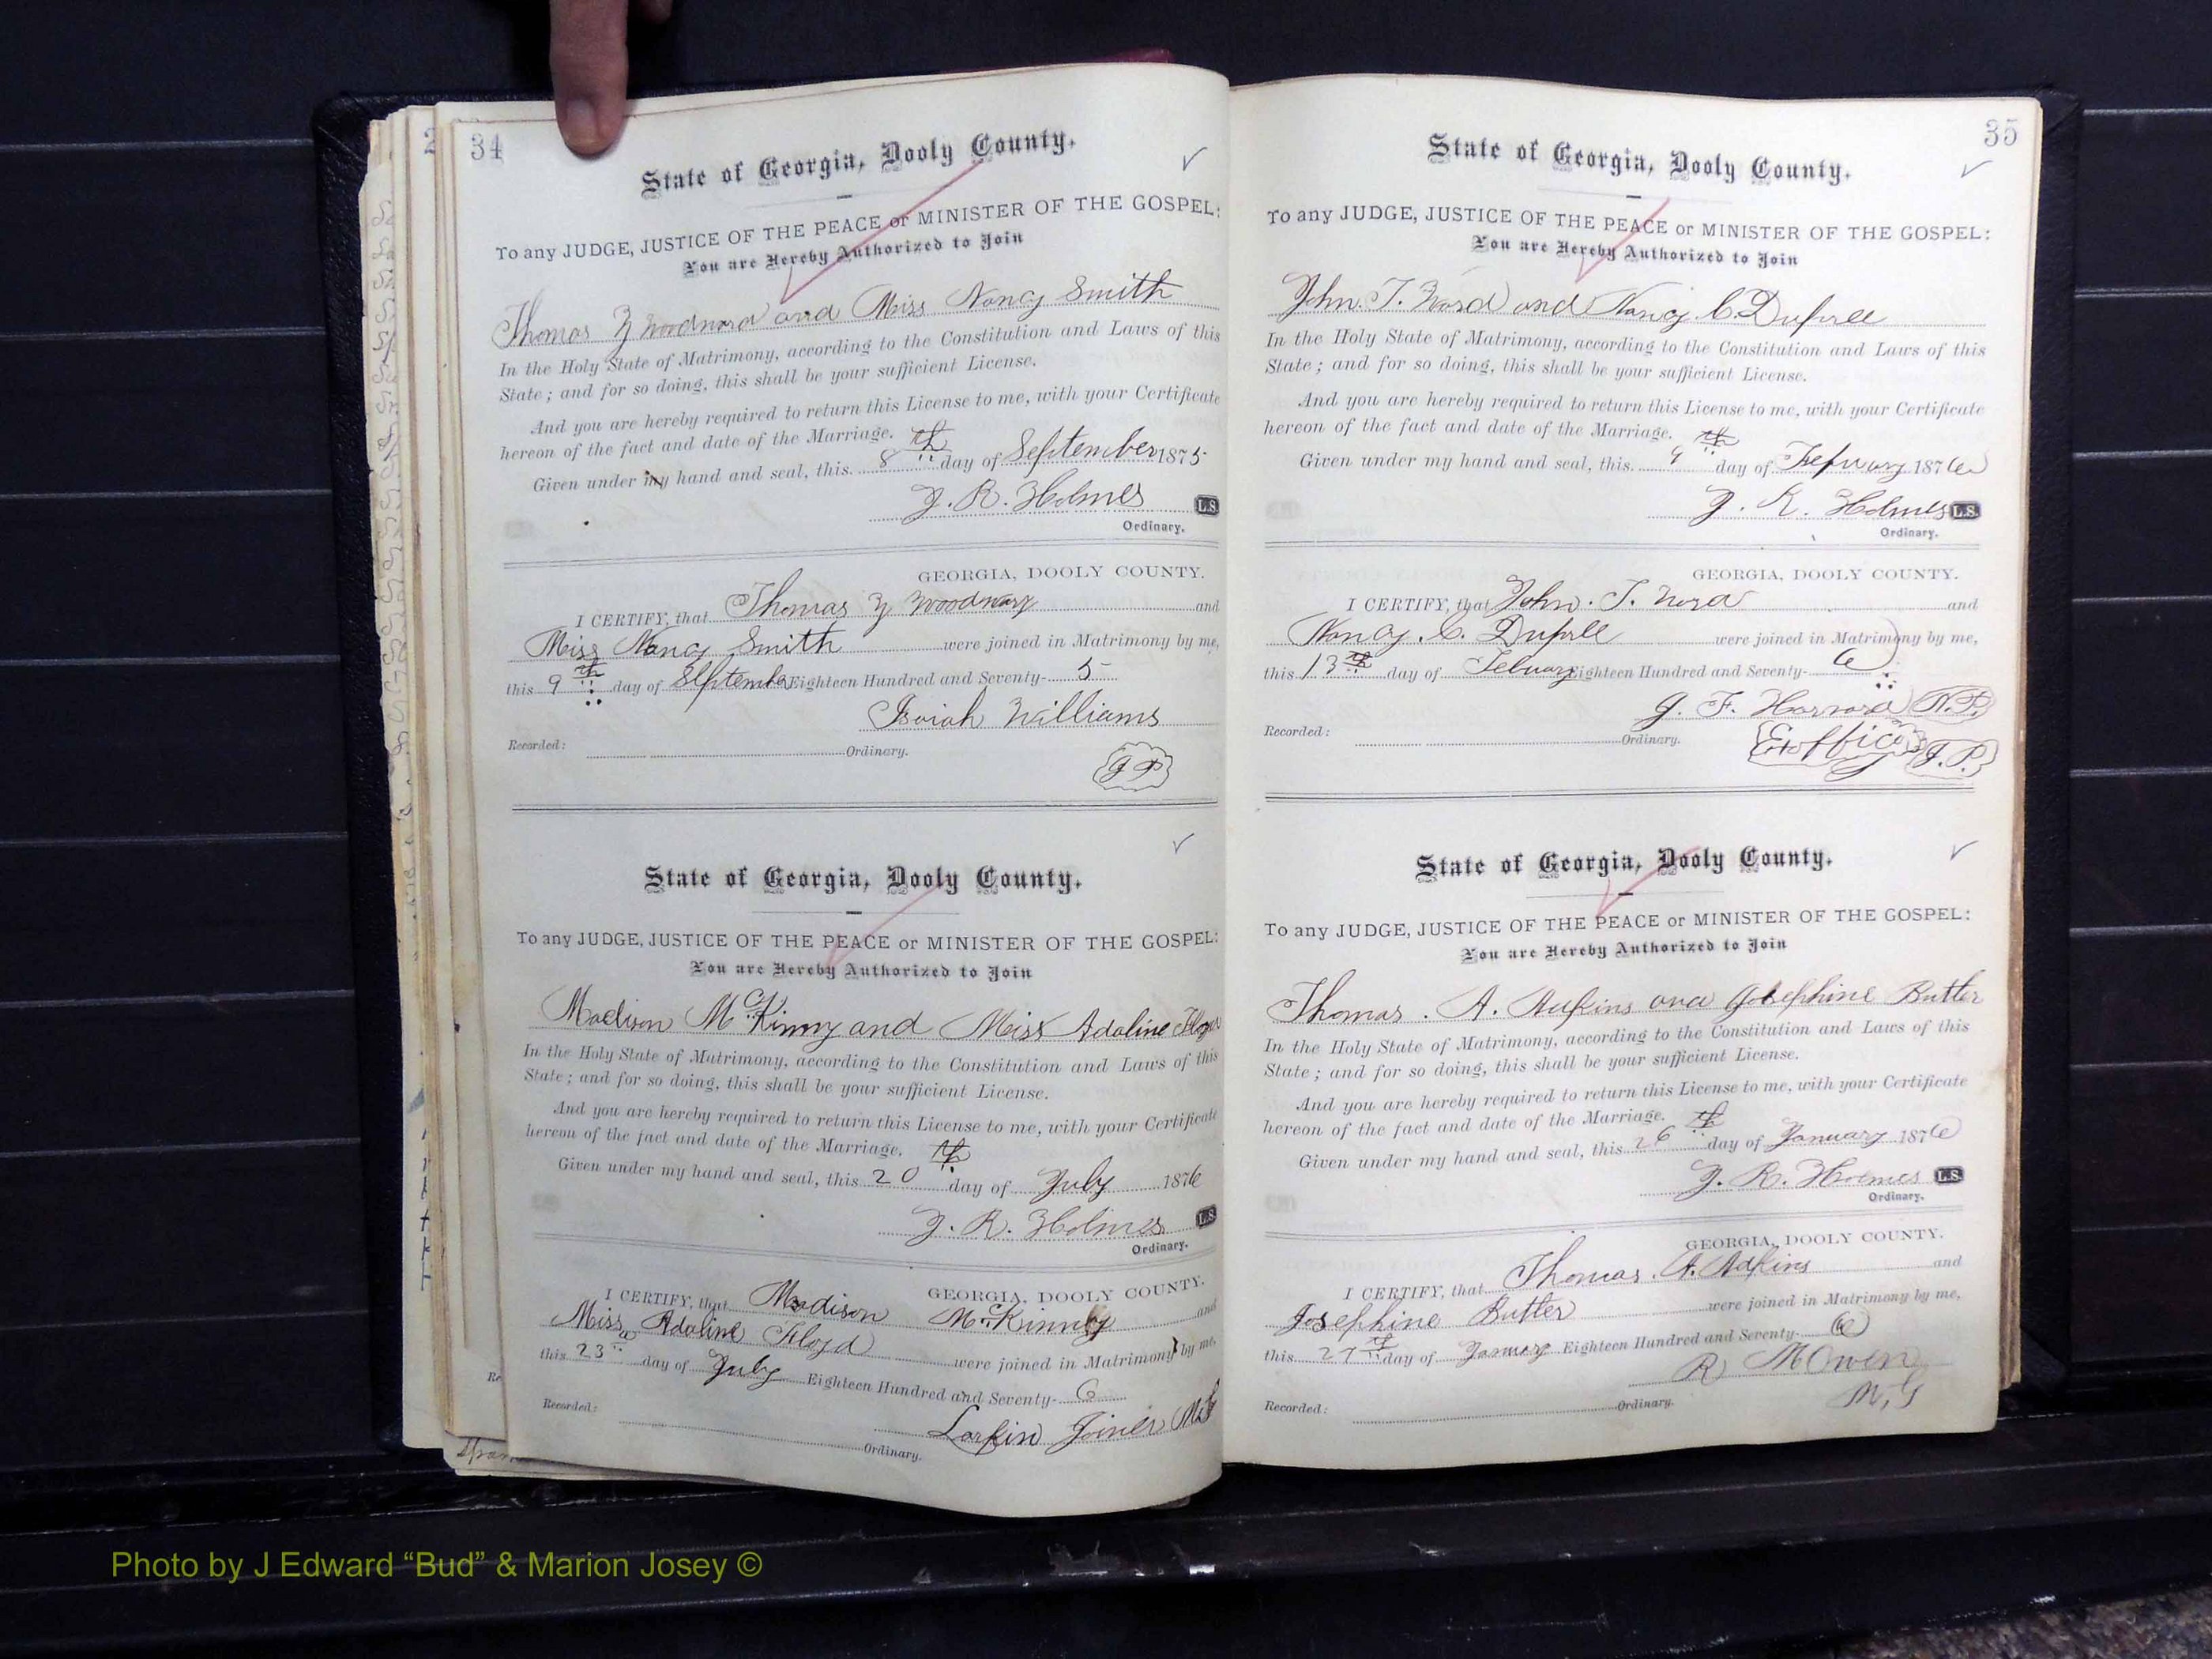 34
State of Georgia, Dooly County.
To any JUDGE, JUSTICE OF THE PEACE or MINISTER OF THE GOSPEL:
You are Hereby Authorized to Join
Thomas and Miss Nancy Smith
In the Holy State of Matrimony, according to the Constitution and Laws of this
State; and for so doing, this shall be your sufficient License.
And you are hereby required to return this License to me, with your Certificate
hereon of the fact and date of the Marriage.
Given under my hand and seal, this 8th day of September 1875
J. R. Holmes L.S.
Ordinary.
GEORGIA, DOOLY COUNTY.
I CERTIFY, that Thomas and
Miss Nancy Smith were joined in Matrimony by me,
this 9th day of Eighteen Hundred and Seventy- 5
Isaiah Williams
Recorded: Ordinary.
J P
State of Georgia, Dooly County.
To any JUDGE, JUSTICE OF THE PEACE or MINISTER OF THE GOSPEL:
You are Hereby Authorized to Join
Madison McKinny and Miss Adaline Floyd
In the Holy State of Matrimony, according to the Constitution and Laws of this
State; and for so doing, this shall be your sufficient License.
And you are hereby required to return this License to me, with your Certificate
hereon of the fact and date of the Marriage.
Given under my hand and seal, this 20th day of July 1876
J. R. Holmes L.S.
Ordinary.
GEORGIA, DOOLY COUNTY.
I CERTIFY, that Madison and
Miss Adaline Floyd were joined in Matrimony by me,
this 23 day of July Eighteen Hundred and Seventy- 6
Larkin Joiner
Recorded: Ordinary.
35
State of Georgia, Dooly County.
To any JUDGE, JUSTICE OF THE PEACE or MINISTER OF THE GOSPEL:
You are Hereby Authorized to Join
John. T. and Nancy. C. Dupree
In the Holy State of Matrimony, according to the Constitution and Laws of this
State; and for so doing, this shall be your sufficient License.
And you are hereby required to return this License to me, with your Certificate
hereon of the fact and date of the Marriage.
Given under my hand and seal, this 9th day of 1876
J. R. Holmes L.S.
Ordinary.
GEORGIA, DOOLY COUNTY.
I CERTIFY, that John. T. and
Nancy. C. Dupree were joined in Matrimony by me,
this 13th day of Eighteen Hundred and Seventy- 6
J. F. N.P.
Recorded: Ordinary.
Exofficio J.P.
State of Georgia, Dooly County.
To any JUDGE, JUSTICE OF THE PEACE or MINISTER OF THE GOSPEL:
You are Hereby Authorized to Join
Thomas. A. Adkins and Josephine Butler
In the Holy State of Matrimony, according to the Constitution and Laws of this
State; and for so doing, this shall be your sufficient License.
And you are hereby required to return this License to me, with your Certificate
hereon of the fact and date of the Marriage.
Given under my hand and seal, this 26th day of January 1876
J. R. Holmes L.S.
Ordinary.
GEORGIA, DOOLY COUNTY.
I CERTIFY, that Thomas. A. Adkins and
Josephine Butler were joined in Matrimony by me,
this 27th day of January Eighteen Hundred and Seventy- 6
R M Owen
Recorded: Ordinary.
M, G
Photo by J Edward “Bud” & Marion Josey ©